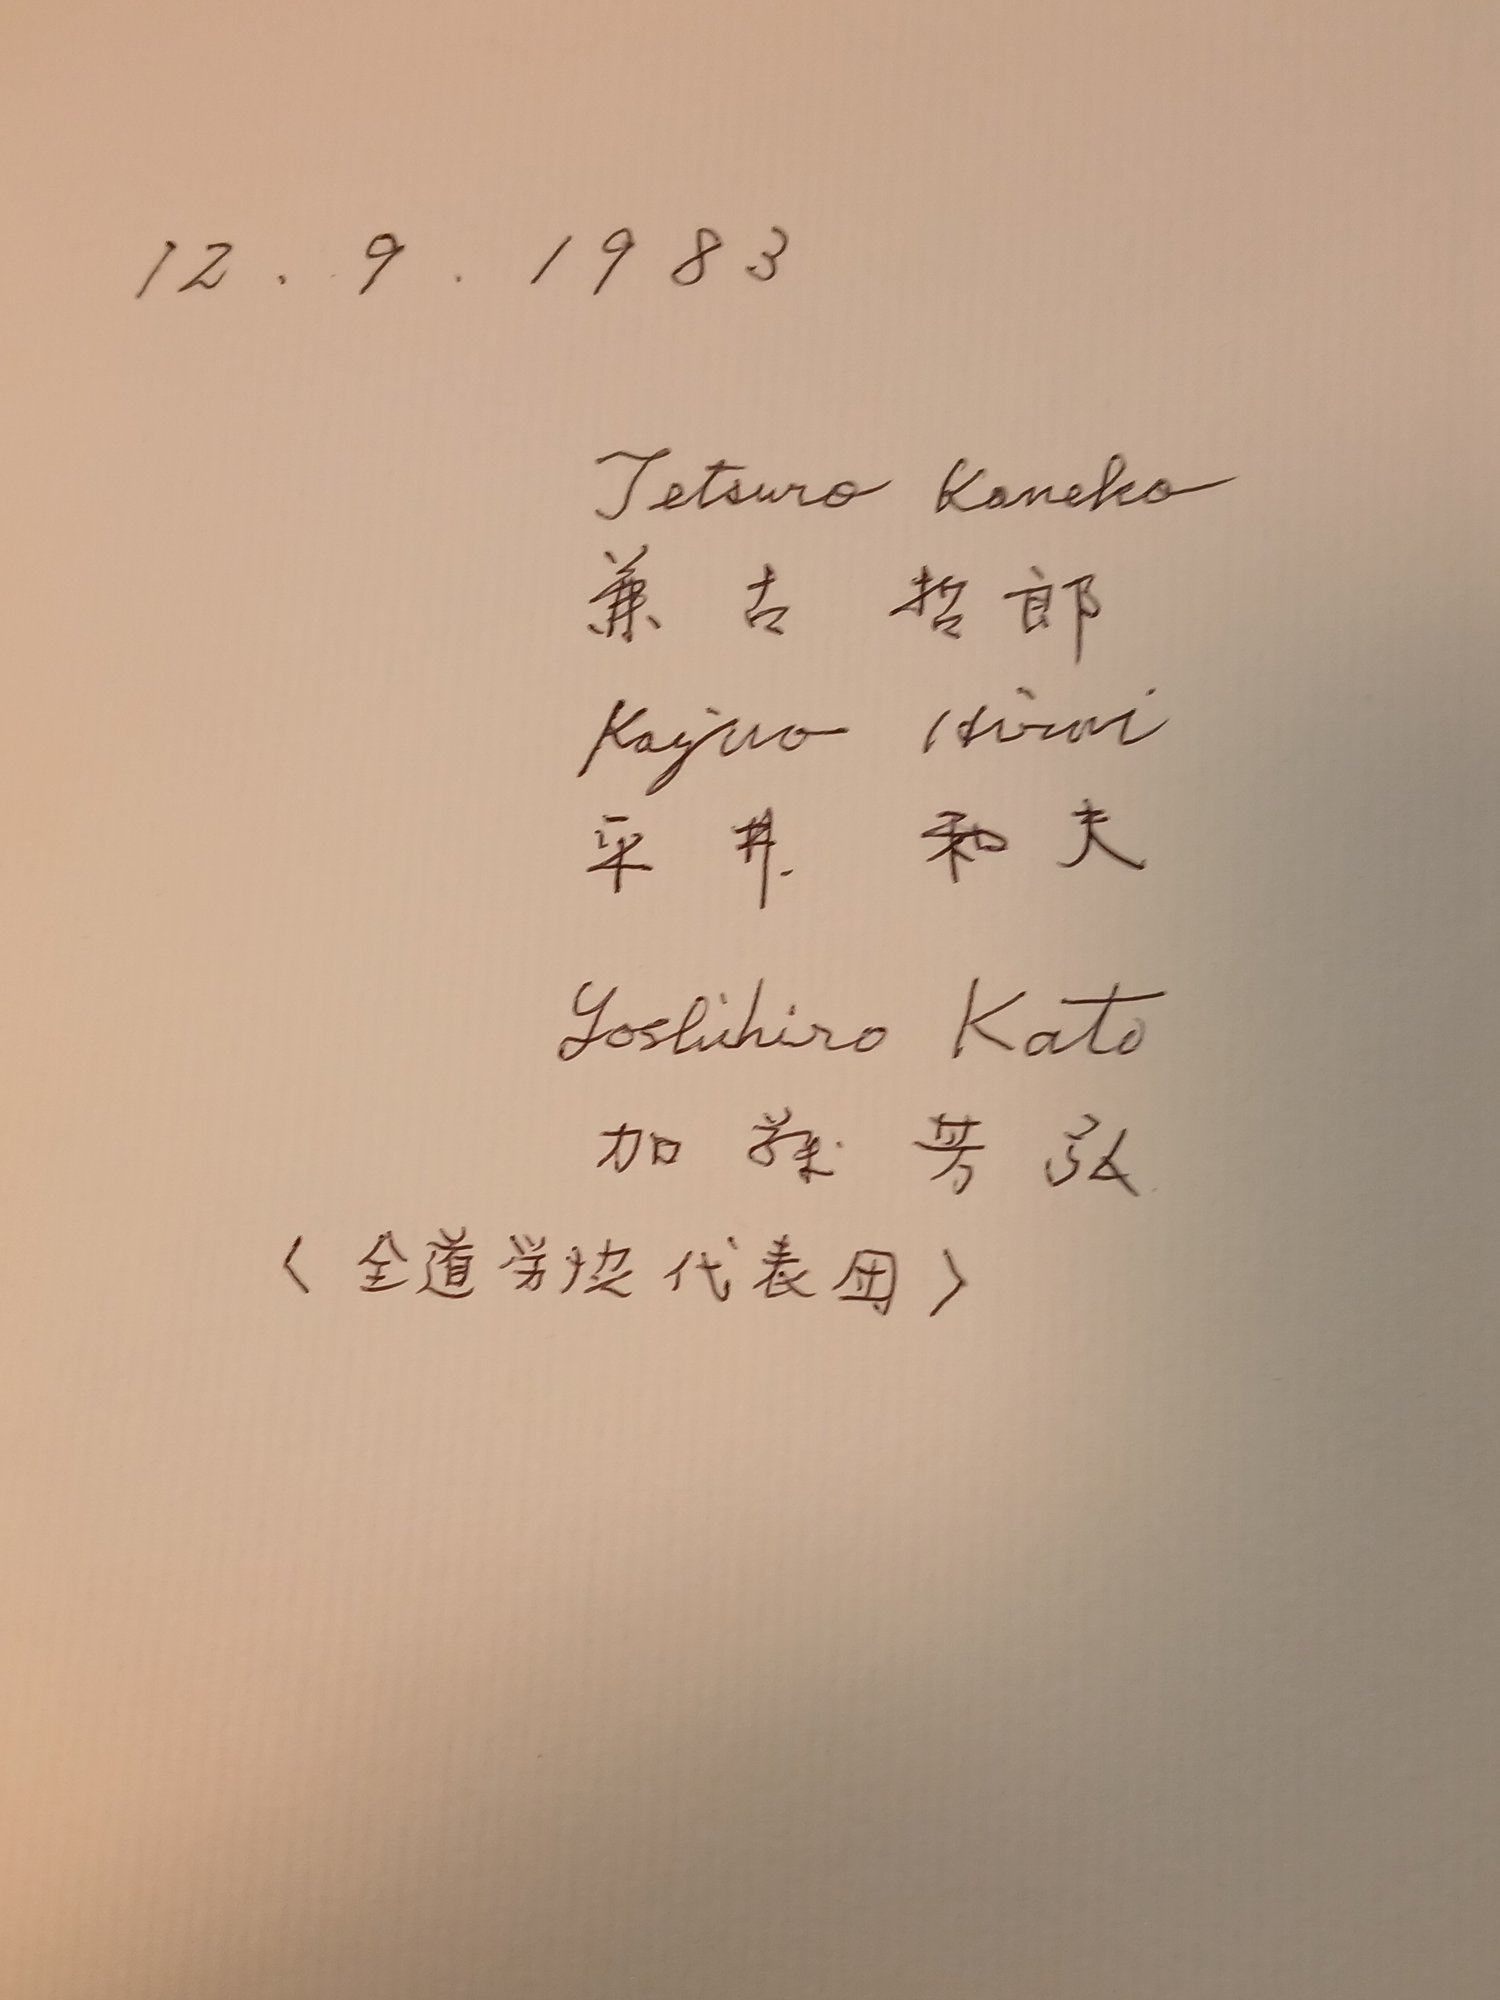 12.9.1983
Tetsuro Kaneko
兼古 哲郎
Kazuo Hirai
平井 和夫
Yoshihiro Kato
加藤 芳弘
〈全道労協代表団〉